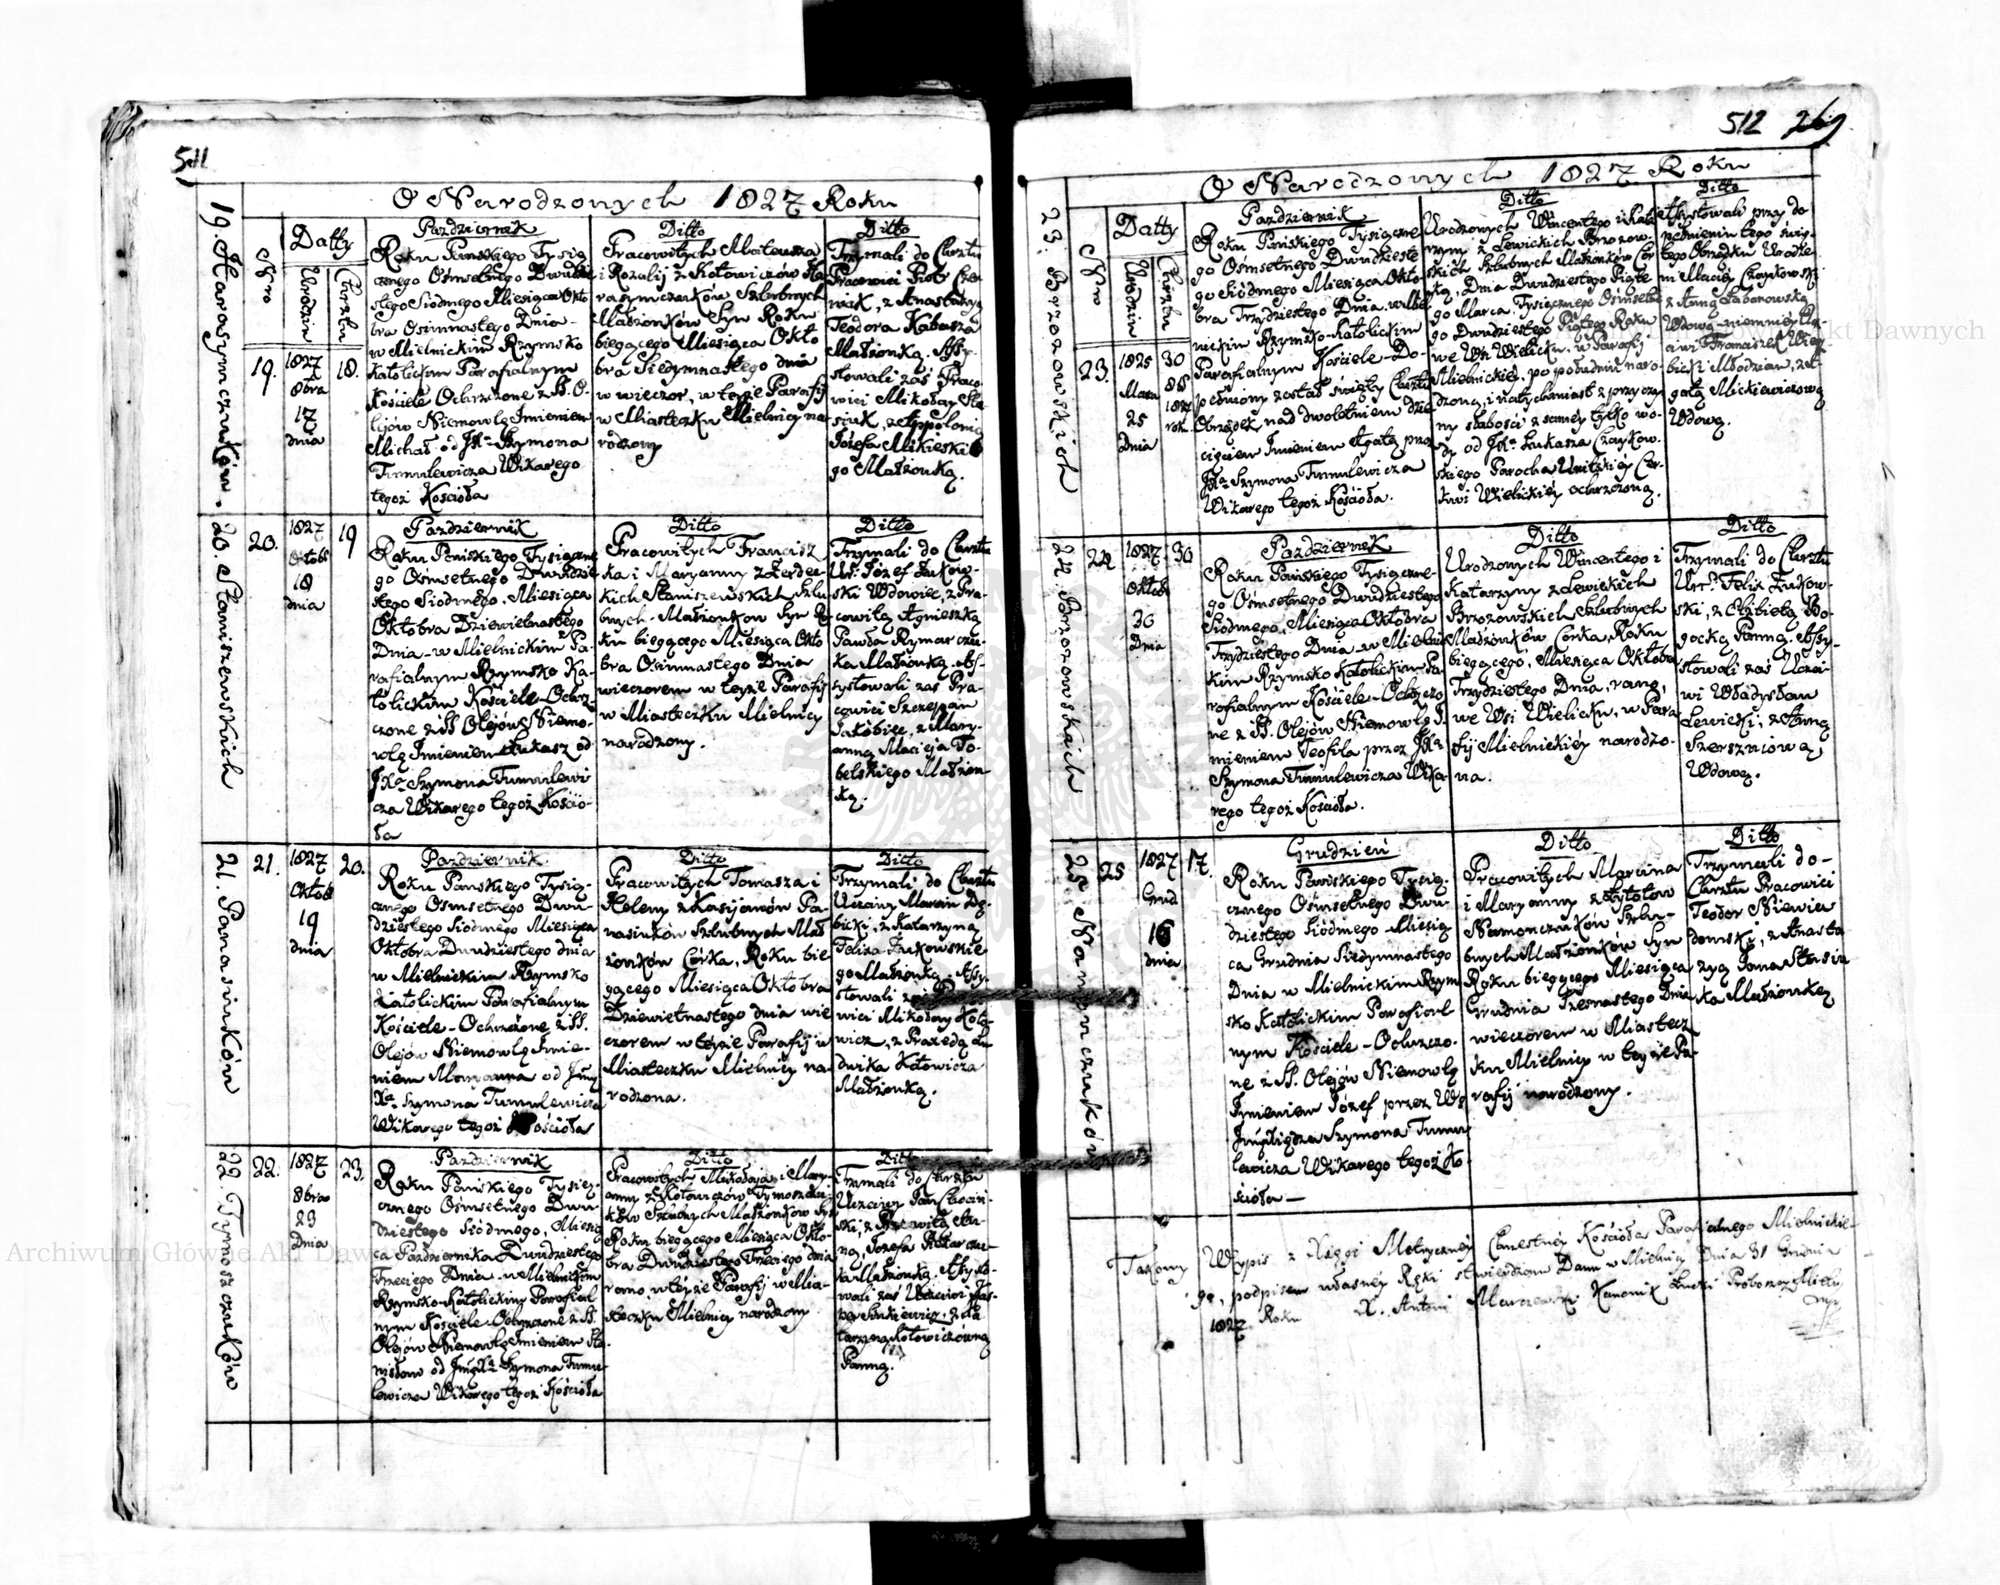 511
O Narodzonych 1827 Roku
19. Harasymczuków.
Nro
Datty
Urodzin
Chrztu
19.
1827
8bra
17
dnia
18.
Pazdziernik
Roku Panskiego Tysią
cznego Ośmsetnego Dwudzie
stego Siódmego Miesiąca Okto
bra Osimnastego Dnia
w Mielnickim Rzymsko
Katolickim Parafialnym
Kościele Ochrzczone z SS. O.
lijów Niemowle Imieniem
Michał od JXa Szymona
Tumulewicza Wikarego
tegoż Kościoła
Ditto
Pracowitych Mateusza
i Rozalij z Kotowiczów Ha
rasymczuków Szlubnych
Małżonków Syn Roku
biegącego Miesiąca Okto
bra Siedymnastego dnia
w wieczor, w teyże Parafij
w Miasteczku Mielnicy na
rodzony
Ditto
Trzymali do Chrztu
Pracowici Piotr
z Anastazyą
Teodora Kabasza
Małżonką. Assy-
stowali zaś Praco
wici Mikołay
z Appolonią
Józefa Mikieski
go Małżonką.
20. Staniszewskich
20.
1827
Oktob
18
dnia
19
Pazdziernik
Roku Panskiego Tysiączne
go Ośmsetnego Dwudzie
stego Siodmego, Miesiąca
Oktobra Dziewietnastego
Dnia w Mielnickim Pa-
rafialnym Rzymsko Ka-
tolickim Kościele Ochrz
czone z SS Olejów Niemo-
wle Imieniem Łukasz od
JXa Szymona Tumulewi
cza Wikarego tegoż Kościo-
ła
Ditto
Pracowitych Francisz
ka i Maryanny z Żerdec-
kich Staniszewskich Szlu
bnych Małżonkow Syn Ro
ku biegącego Miesiąca Okto
bra Osimnastego Dnia
wieczorem w teyże Parafij
w Miasteczku Mielnicy
narodzony.
Ditto
Trzymali do Chrztu
Ur: Józef Żukow-
ski Wdowiec, z Pra-
cowitą Agnieszką
Pawła Rymarczu-
ka Małżonką. As-
systowali zaś Pra-
cowici Szczepan
Jakobiec, z Mary-
anną Macieja To-
belskiego Małżon-
ką.
21. Panasiuków
21.
1827
Oktob
19
dnia
20.
Pazdziernik
Roku Panskiego Tysią-
cznego Ośmsetnego Dwu-
dziestego Siodmego Miesiąca
Oktobra Dwudziestego dnia
w Mielnickim Rzymsko
Katolickim Parafialnym
Kościele Ochrzczone z SS.
Olejów Niemowle Imie-
niem Maryanna od Jmci
Xa Szymona Tumulewicza
Wikarego tegoż Kościoła
Ditto
Pracowitych Tomasza i
Heleny z Kasijanów Pa-
nasiuków Szlubnych Mał
żonków Córka, Roku bie
gącego Miesiąca Oktobra
Dziewietnastego dnia wie
czorem w teyże Parafij w
Miasteczku Mielnicy na-
rodzona.
Ditto
Trzymali do Chrztu
Uczciwy Marcin Dę-
bicki, z Katarzyną
Felixa Żukowskie
go Małżonką. Assy-
stowali zaś Praco
wici Mikołay Koto-
wicz, z Praxedą Lu
dwika Kotowicza
Małżonką.
22 Tymoszczuków
22.
1827
8bra
23
Dnia
23.
Pazdziernik
Roku Pańskiego Tysią-
cznego Ośmsetnego Dwu
dziestego Siódmego, Miesią
ca Pazdziernika Dwudziestego
Trzeciego Dnia w Mielnickim
Rzymsko-Katolickim Parafial
nym Kościele Ochrzczone z SS.
Olejów Niemowle Imieniem Sta-
nisław od JmciXa Szymona Tumu-
lewicza Wikarego tegoż Kościoła
Ditto
Pracowitych Mikołaja i Mary-
anny z Kotowiczów Tymoszczu-
ków Szlubnych Małżonkow Syn
Roku biegącego Miesiąca Okto-
bra Dwudziestego Trzeciego dnia
rano, w teyże Parafij w Mia-
steczku Mielnicy narodzony
Ditto
Trzymali do Chrztu
Uczciwy Jan
ski, z An-
ną, Jozefa
ka Małżonką. Assysto-
wali zaś Uczciwi Kas-
per z Ka
tarzyną Kotowiczowną
Panną.
512 269
O Narodzonych 1827 Roku
23. Brzozowskich
Nro
Datty
Urodzin
Chrztu
23.
1825
Marca
25
Dnia
30
8br
1827
rok.
Pazdziernik
Roku Pańskiego Tysiączne
go Ośmsetnego Dwudzieste
go Siódmego Miesiąca Okto-
bra Trzydziestego Dnia, w Miel
nickim Rzymsko-Katolickim
Parafialnym Kościele Do-
pełniony został święty Chrztu
Obrządek nad dwoletniem dzie
cięciem Imieniem Agatą przez
JXa Szymona Tumulewicza
Wikarego tegoż Kościoła.
Ditto
Urodzonych Wincentego i Kata
rzyny z Lewickich Brzozow-
skich Szlubnych Małżonków Cór
ką, Dnia Dwudziestego Piąte
go Marca, Tysiącznego Ośmsetne
go Dwudziestego Piątego Roku
we Wsi Wielicku, w Parafij
Mielnickiéy, po południu naro-
dzoną, i natychmiast z przyczy
ny słabości z samey tylko wo-
dy od JXa Łukasza Czaykow-
skiego Parocha Unitskiéy Cer-
kwi Wielickiéy ochrzczoną.
Ditto
Assystowali przy do
pełnieniu tego świę-
tego Obrządku Urodze-
ni Maciéy Czaykowski
z Anną Łabanowską
Wdową niemniéy
Franciszek
bicki Młodzian, z A-
gatą Mickiewiczową
Wdową.
24 Brzozowskich
24
1827
Oktob
30
Dnia
30
Pazdziernik
Roku Pańskiego Tysiączne-
go Ośmsetnego Dwudziestego
Siodmego, Miesiąca Oktobra
Trzydziestego Dnia w Mielni
ckim Rzymsko Katolickim Pa
rafialnym Kościele Ochrzczo
ne z SS. Olejów Niemowle I-
mieniem Teofila przez JXa
Szymona Tumulewicza Wika-
rego tegoż Kościoła.
Ditto
Urodzonych Wincentego i
Katarzyny z Lewickich
Brzozowskich Szlubnych
Małżonków Córka, Roku
biegącego, Miesiąca Oktobra
Trzydziestego Dnia, rano,
we Wsi Wielicku, w Para
fij Mielnickiéy narodzo-
na.
Ditto
Trzymali do Chrztu
Urr: Felix Żukow-
ski, z Elżbietą Bo-
gocką Panną. Assy-
stowali zaś Uczci-
wi Władysław
Lewicki, z Anną
Szerszniową
Wdową.
25. Namonczuków
25
1827
Grud
16
dnia
17.
Grudzień
Roku Pańskiego Tysią-
cznego Ośmsetnego Dwu-
dziestego Siódmego Miesią
ca Grudnia Siedymnastego
Dnia w Mielnickim Rzym
sko Katolickim Parafial
nym Kościele Ochrzczo-
ne z SS. Olejów Niemowle
Imieniem Józef przez W.
Jmći Xiędza Szymona Tumu-
lewicza Wikarego tegoż Ko-
ścioła
Ditto
Pracowitych Marcina
i Maryanny z Łytotow
Namonczuków Szlu-
bnych Małżonków Syn
Roku biegącego Miesiąca
Grudnia Szesnastego Dnia
wieczorem w Miastecz
ku Mielnicy w teyże Pa-
rafij narodzony.
Ditto
Trzymali do
Chrztu Pracowici
Teodor Niewia
domski, z Anasta
zyą Jana Stasiu
ka Małżonką
Takowy Wypis z Xięgi Metryczney Chrestney Kościoła Parafialnego Mielnickie-
go, podpisem własney Ręki stwierdzam Dann w Mielnicy Dnia 31 Grudnia
1827 Roku X. Antoni Marczewski Kanonik Łucki Proboszcz Mielnicki
mp
Archiwum Główne Akt Dawnych